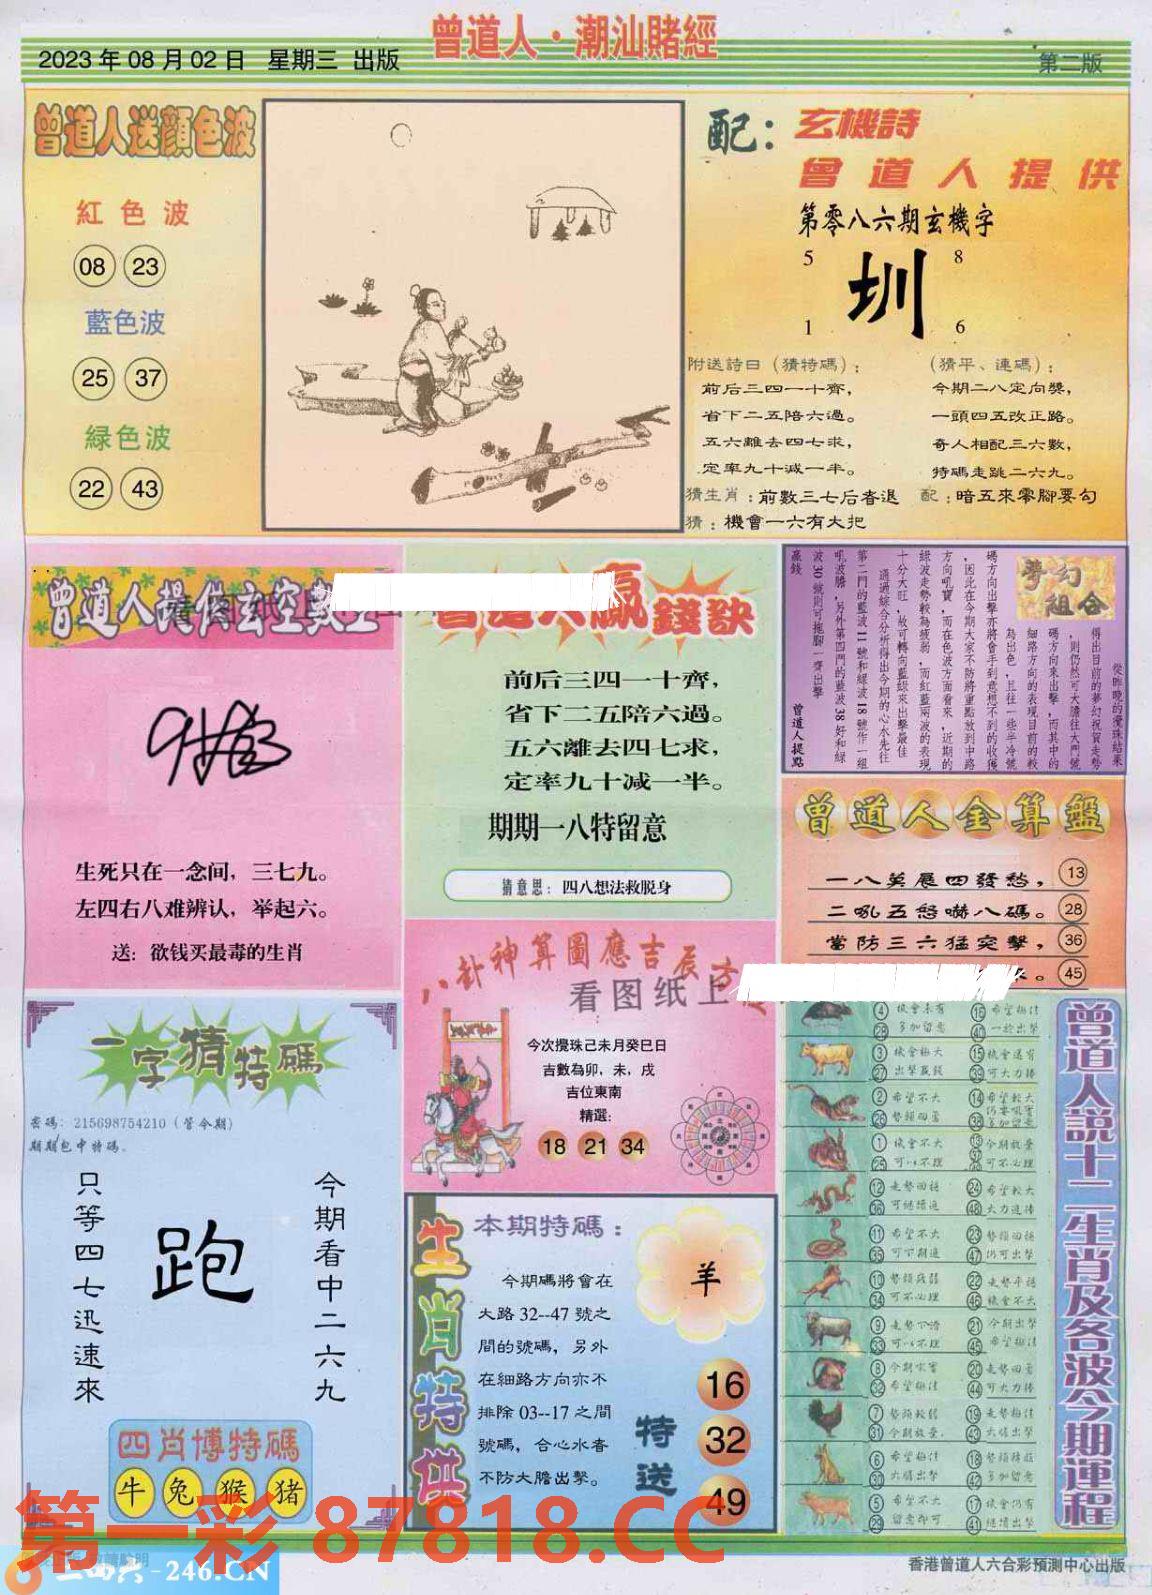 曾道人·潮汕賭經
2023年08月02日 星期三 出版
第二版
曾道人送顔色波
紅色波
08 23
藍色波
25 37
緑色波
22 43
配：玄機詩
曾道人提供
第零八六期玄機字
5 8
圳
1 6
附送詩曰（猜特碼）：
前后三四一十齊，
省下二五陪六過。
五六離去四七求，
定率九十減一半。
猜生肖：前數三七后春退
猜：機會一六有大把
（猜平、連碼）：
今期二八定向獎，
一頭四五改正路。
奇人相配三六數，
特碼走跳二六九。
配：暗五來零腳要勾
曾道人提供玄空數
生死只在一念间，三七九。
左四右八难辨认，举起六。
送：欲钱买最毒的生肖
曾道人贏錢訣
前后三四一十齊，
省下二五陪六過。
五六離去四七求，
定率九十减一半。
期期一八特留意
猜意思：四八想法救脱身
夢幻組合
從昨晚的攪珠結果
得出目前的夢幻祝賀走勢
，則仍然可大膽往大門號
碼方向來出擊，而其中的
細路方向的表現目前的較
為出色，且往一些半冷號
碼方向出擊亦將會手到意想不到的收獲
，因此在今期大家不防將重點放到中路
方向吼實，而在色波方面看來，近期的
綠波走勢較為疲弱，而紅藍兩波的表現
十分大旺，故可轉向藍綠來出擊最佳
通過綜合分析得出今期的心水先往
第二門的藍波11號和綠波18號作一組
吼波膽，另外第四門的藍波38好和綠
波30號則可拖腳一齊出擊
贏錢
曾道人提點
曾道人金算盤
一八英展四發愁，13
二吼五怒嚇八碼。28
當防三六猛突擊，36
。45
八卦神算圖應吉辰方
看图纸上
今次攪珠己未月癸巳日
吉數為卯，未，戌
吉位東南
精選:
18 21 34
一字猜特碼
密碼：215698754210（管今期）
期期包中特碼。
今期看中二六九
跑
只等四七迅速來
四肖博特碼
牛 兔 猴 猪
生肖特供
本期特碼：
羊
今期碼將會在
大路32--47號之
間的號碼，另外
在細路方向亦不
排除03--17之間
號碼，合心水者
不防大膽出擊。
特送
16
32
49
曾道人説十二生肖及各波今期運程
4 機會未有 16 希望極佳
28 多加留意 40 一於出擊
3 機會極大 15 機會還有
27 出擊贏錢 39 可大力捧
2 希望不大 14 希望較大
26 勢頭回落 38 多加留意
1 機會不大 13 今期放棄
25 可以不理 37 可不必理
12 走勢回穩 24 希望較大
36 可繼續追 48 大力追捧
11 希望不大 23 勢頭回穩
35 可下期追 47 仍可出擊
10 勢頭疲弱 22 走勢平穩
34 可不必理 46 機會不大
9 走勢下滑 21 今期出擊
33 可以不理 45 希望極佳
8 今期吼實 20 走勢回勇
32 希望極佳 44 可大力捧
7 勢頭較弱 19 走勢極佳
31 今期放棄. 43 大膽出擊
6 希望極佳 18 勢頭
30 大膽出擊 42 多加留意
5 希望不大 17 機會仍有
29 留意即可 41 繼續出擊
第一彩 87818.CC
二四六-246.CN
香港曾道人六合彩預測中心出版